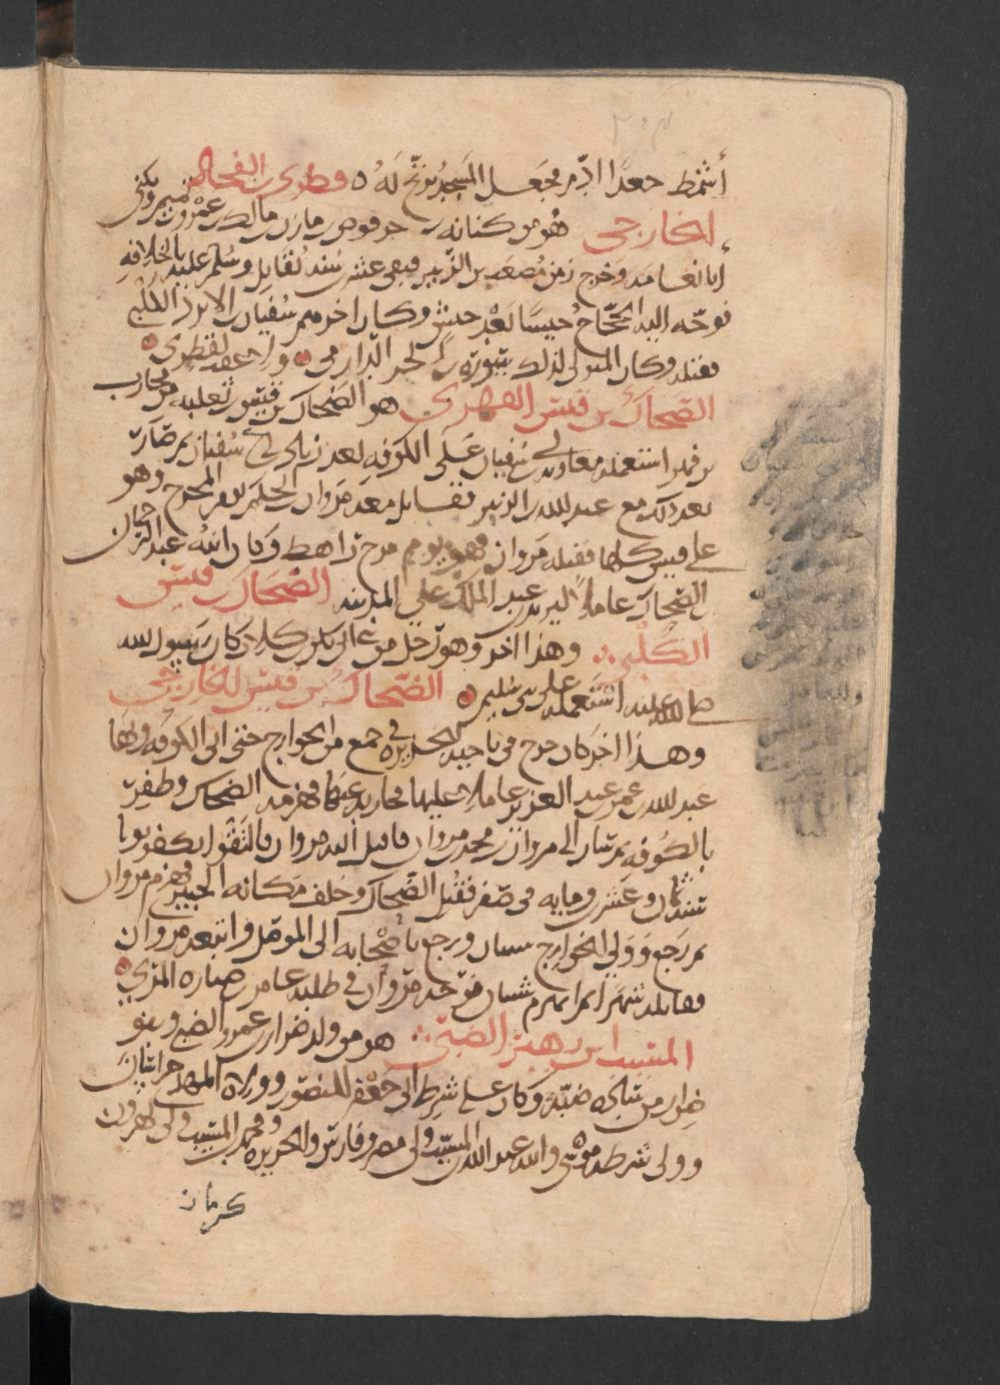 أشمط جعدًا الدّم فجعل المسجد ينزح له ٥ قطري بن الفجاة
الخارجي هو من كنانه بن حرقوص بن مازن بن مالك بن عمرو بن تميم ويكنى
أبا نعامه وخرج زمن مصعب بن الزبير فبقي عشرين سنه يقاتل ويسلم عليه بالخلافه
فوجه اليه الحجّاج جيسًا بعد جيش وكان اخرهم سفيان بن الابرد الكلبي
فقتله وكان المتولى لذلك سورة بن الحر الدارمي ٥ ولا عقب لقطري ٥
الضحاك بن قيس الفهري هو الضحاك بن قيس بن ثعلبه من محارب
بن فهر استعمله معاوية بن ابي سفيان على الكوفه بعد زياد بن ابي سفيان ثم صار
بعد ذلك مع عبد الله بن الزبير فقاتل معه مروان بن الحكم يوم المرج وهو
على قيس كلها فقتله مروان فهو يوم مرج راهط وكان ابنه عبد الرحمان
بن الضحاك عاملا ليزيد بن عبد الملك على المدينه الضحاك بن قيس
الكلبي وهذا اخر وهو رجل من بني ابي بكر بن كلاب كان رسول الله
صلى الله عليه استعمله على بني سليم ٥ الضحاك بن قيس الخارجي
وهذا اخر كان خرج في ناحية الجزيره في جمع من الخوارج حتى اتى الكوفه وبها
عبد الله بن عمر بن عبد العزيز عاملا عليها فحاربه عنها فهزمه الضحاك وظفر
بالكوفه ثم سار الى مروان بن محمد بن مروان فاقبل اليه مروان فالتقوا بكفرتوثا
سنة ثمان وعشرين ومايه في صفر فقتل الضحاك وخلف مكانه الخيبري فهزم مروان
ثم رجع وولي الخوارج شيبان ورجع باصحابه الى الموصل واتبعه مروان
فقاتله شهرا ثم انهزم شيبان فوجه مروان في طلبه عامر بن ضباره المري ٥
المسيب بن زهير الضبي هو من ولد ضرار بن عمرو الضبي وبنو
ضرار من سادة ضبّه وكان على شرط ابي جعفر المنصور وولاه المهدي خراسان
وولى شرطه موسى وابنه عبد الله بن المسيب ولى مصر وفارس والجزيره ومحمد بن المسيب ولى لهرون
كرمان